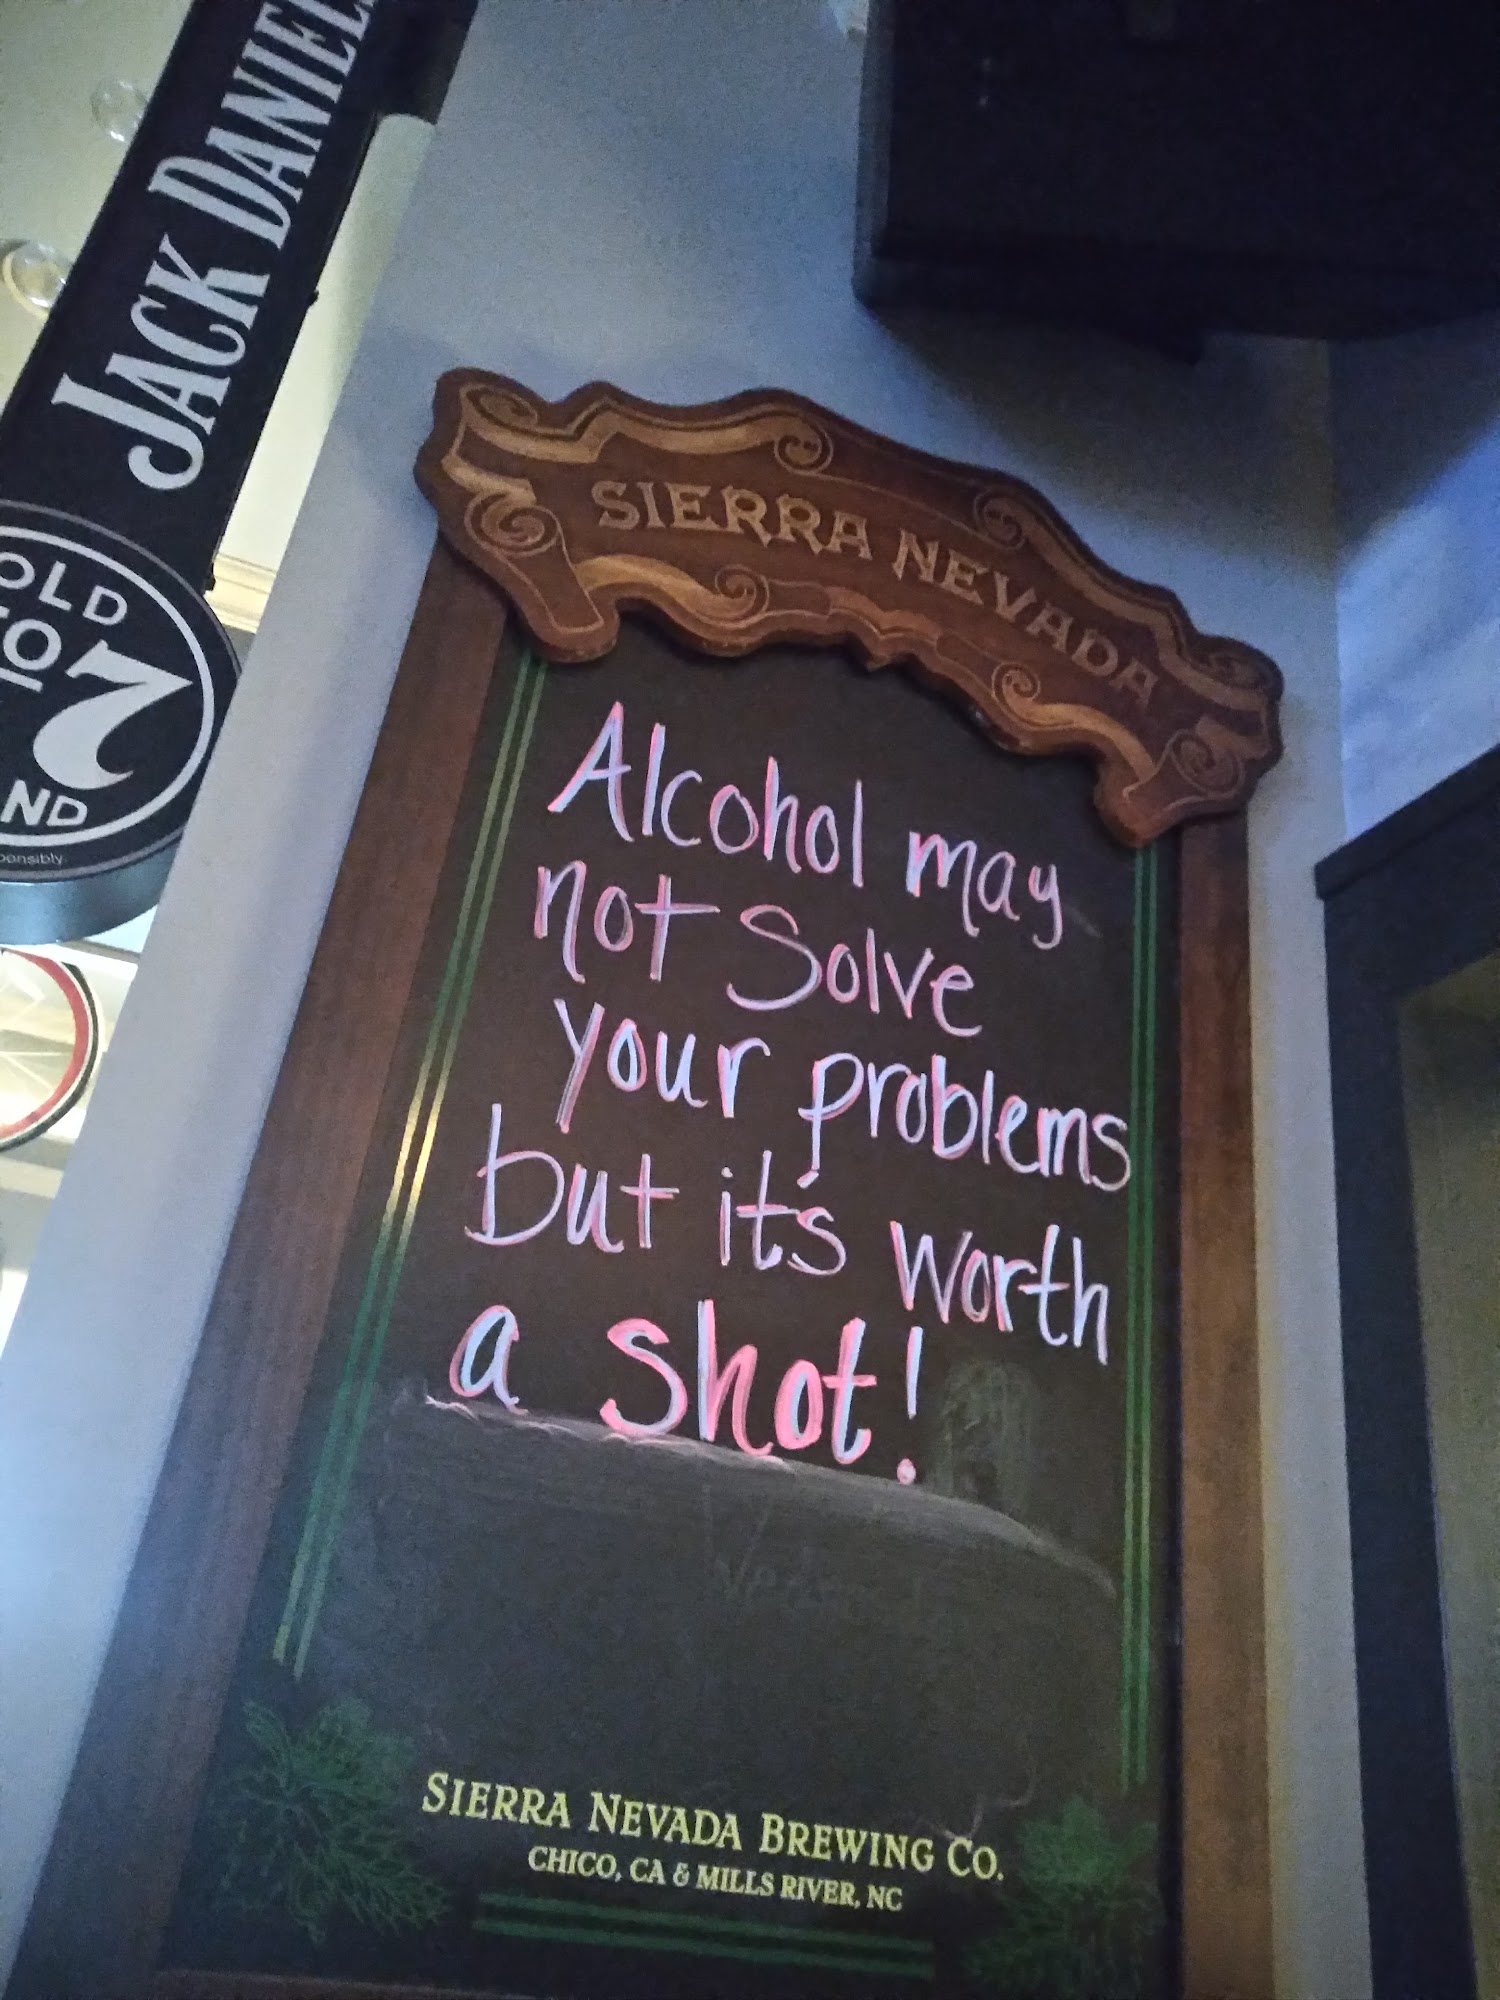 JACK DANIEL
OLD
NO
7
ND
ponsibly.
SIERRA NEVADA
Alcohol may
not Solve
your problems
but it's worth
a shot!
SIERRA NEVADA BREWING CO.
CHICO, CA & MILLS RIVER, NC